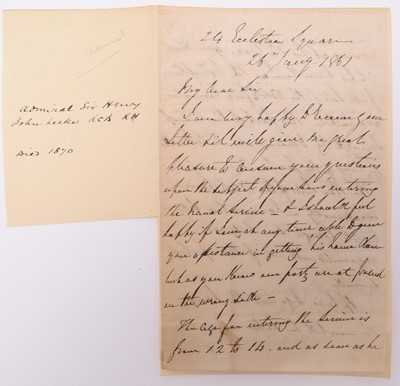 Admiral
Admiral Sir Henry
John Leeke KCB KH
Died 1870
24 Eccleston Square
26 Aug 1861
My dear Sir
I am very happy to receive your
letter & it will give me great
pleasure to answer your questions
upon the subject of your sons entering
the Naval Service — & I should feel
happy if I am at any time able to give
you assistance in getting his name down
but as you know our party are at present
on the wrong side —
The age for entering the Service is
from 12 to 14. and as soon as he